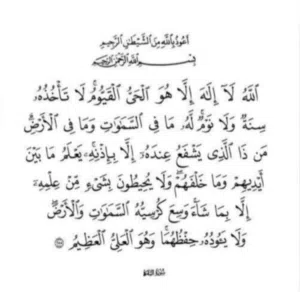 اعوذ بالله من الشيطن الرجيم
بسم الله الرحمن الرحيم
ٱللَّهُ لَآ إِلَٰهَ إِلَّا هُوَ ٱلْحَىُّ ٱلْقَيُّومُ ۚ لَا تَأْخُذُهُۥ
سِنَةٌ وَلَا نَوْمٌ ۚ لَّهُۥ مَا فِى ٱلسَّمَٰوَٰتِ وَمَا فِى ٱلْأَرْضِ ۗ
مَن ذَا ٱلَّذِى يَشْفَعُ عِندَهُۥٓ إِلَّا بِإِذْنِهِۦ ۚ يَعْلَمُ مَا بَيْنَ
أَيْدِيهِمْ وَمَا خَلْفَهُمْ ۖ وَلَا يُحِيطُونَ بِشَىْءٍ مِّنْ عِلْمِهِۦٓ
إِلَّا بِمَا شَآءَ ۚ وَسِعَ كُرْسِيُّهُ ٱلسَّمَٰوَٰتِ وَٱلْأَرْضَ ۖ
وَلَا يَـُٔودُهُۥ حِفْظُهُمَا ۚ وَهُوَ ٱلْعَلِىُّ ٱلْعَظِيمُ